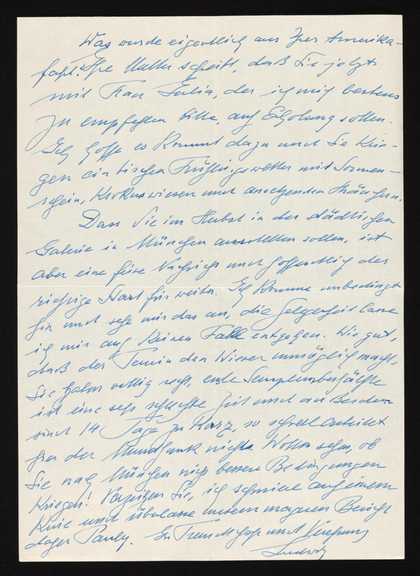 Was wurde eigentlich aus Ihrer Amerika-
fahrt? Ihre Mutter schreibt, daß Sie jetzt
mit Frau Julia, der ich mich bestens
zu empfehlen bitte, auf Erholung sollen.
Ich hoffe es kommt dazu und Sie krie-
gen ein bischen Frühlingswetter mit Sonnen-
schein, Krokuswiesen und Sträuchern.
Dass Sie im Herbst in der städtischen
Galerie in München ausstellen sollen, ist
aber eine feine Nachricht und hoffentlich der
richtige Start für weiter. Ich komme unbedingt
hin und seh mir das an, die Gelegenheit lasse
ich mir auf keinen Fall entgehen. Wie gut,
daß der Termin den Wiener unmöglich macht,
Sie haben völlig recht, erste Septemberhälfte
ist eine sehr schlechte Zeit und ausserdem
sind 14 Tage zu kurz, so schnell arbeitet
hier der Rundfunk nicht. Wollen sehen, ob
Sie nach München nicht bessere Bedingungen
kriegen! Verzeihen Sie, ich schmiere auf einem
Knie und überlasse den weiteren Bericht
Pauly. In Freundschaft und Verehrung
Ludwig